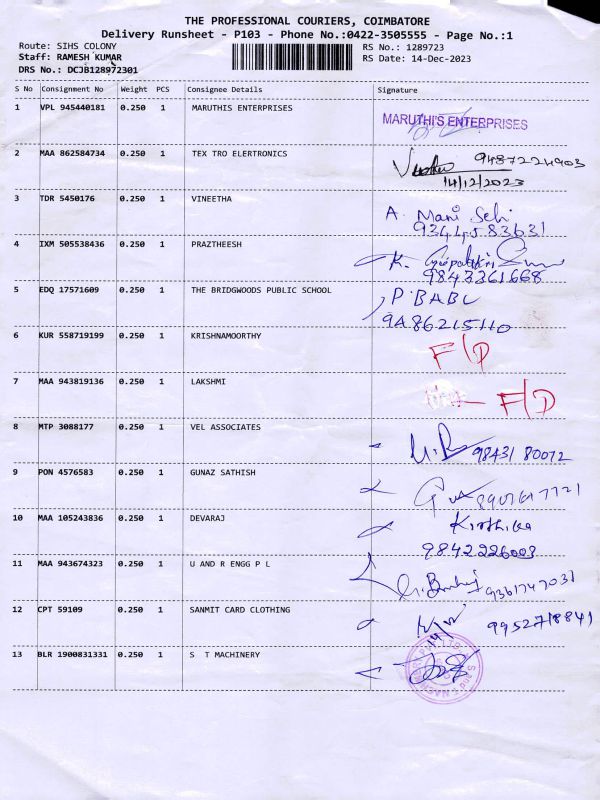 THE PROFESSIONAL COURIERS, COIMBATORE
Delivery Runsheet - P103 - Phone No.:0422-3505555 - Page No.:1
Route: SIHS COLONY RS No.: 1289723
Staff: RAMESH KUMAR RS Date: 14-Dec-2023
DRS No.: DCJB128972301
S No Consignment No Weight PCS Consignee Details Signature
1 VPL 945440181 0.250 1 MARUTHIS ENTERPRISES MARUTHI'S ENTERPRISES
2 MAA 862584734 0.250 1 TEX TRO ELERTRONICS 9487224903
14/12/2023
3 TDR 5450176 0.250 1 VINEETHA A. Mani Selvi
9344583631
4 IXM 505538436 0.250 1 PRAZTHEESH K.
9843361668
5 EDQ 17571609 0.250 1 THE BRIDGWOODS PUBLIC SCHOOL P. BABU
9486215110
6 KUR 558719199 0.250 1 KRISHNAMOORTHY F/D
7 MAA 943819136 0.250 1 LAKSHMI F/D
8 MTP 3088177 0.250 1 VEL ASSOCIATES 98431 80072
9 PON 4576583 0.250 1 GUNAZ SATHISH
10 MAA 105243836 0.250 1 DEVARAJ Kirthika
9842226003
11 MAA 943674323 0.250 1 U AND R ENGG P L 9361747031
12 CPT 59109 0.250 1 SANMIT CARD CLOTHING 9952718841
13 BLR 1900831331 0.250 1 S T MACHINERY